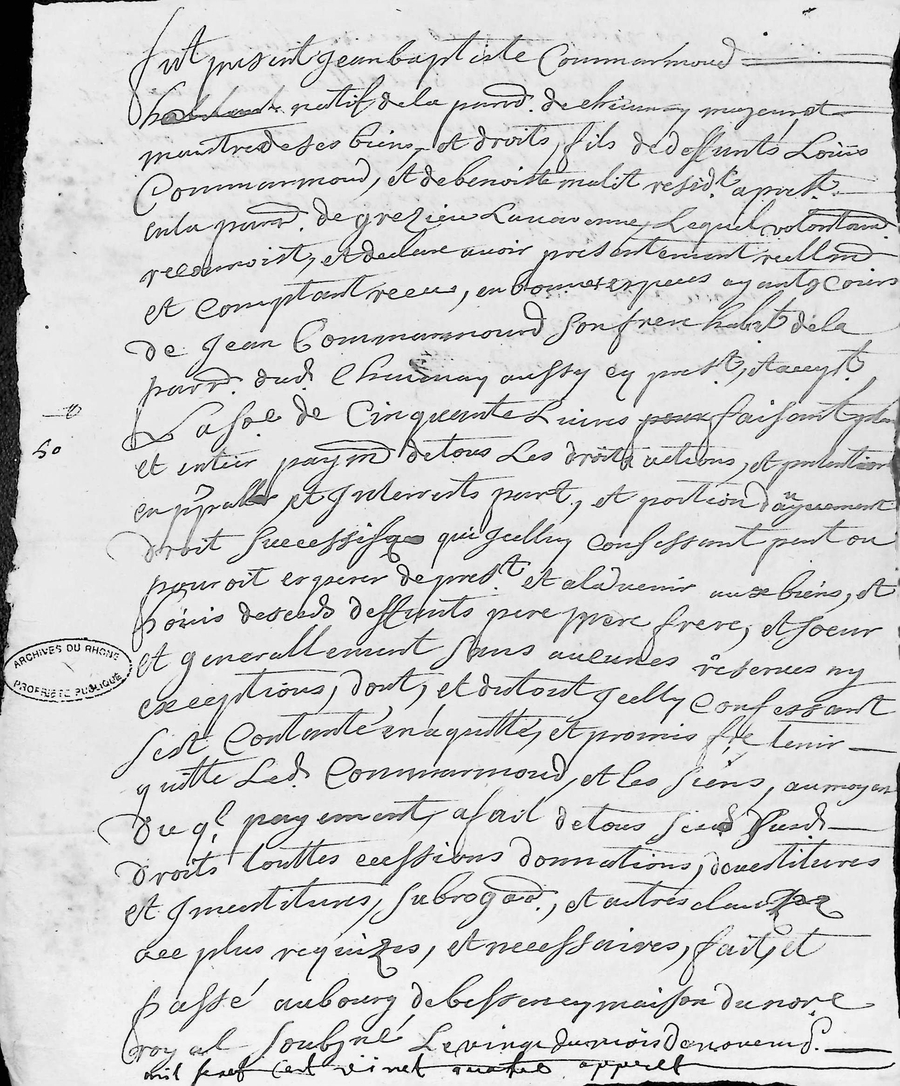 fut present jean baptiste Commarmond
natif de la parr. de chiumay majeur et
maitre de ses biens, et droits, fils de deffunts Loüis
Commarmond, et de benoiste malit resid.t a prest.
en la parr. de grezieu Lauarenne, Lequel volontaird
reconnoist, et declare auoir presentement reellmd
et comptant receu, en bonnes especes ayant Cours
de jean Commarmond son frere habit. de la
parr. dud. aussy cy prest., et accept.
La so.e de Cinquante Liures pour faisant
—o
50
et entier paymd de tous Les droits actions, et pretentions
en pp.al et Interrests part, et portion d'augment
droit successif que jcelluy confessant peut ou
pourroit esperer de prest. et a laduenir aux biens, et
hoiris desesds deffunts pere mere frere, et soeur
ARCHIVES DU RHONE
PROPRIÉTÉ PUBLIQUE
et generallement sans aucunes reserues ny
exceptions, dont, et dutout jcelluy Confessant
sest Contanté en a quitté, et promis f.re tenir
quitte Led. Commarmond, et les siens, au moyen
Du q.l payement, a fait de tous sesd. susd.
droits touttes cessions donnations, deuestitures
et Jnuestitures, subrogaon., et autres clauses
a ce plus requizes, et necessaires, fait, et
passé au bourg de bessenay maison du no.re
royal soubz.né, Le vingt du mois de novemb.
mil sept cent vint quatre appert